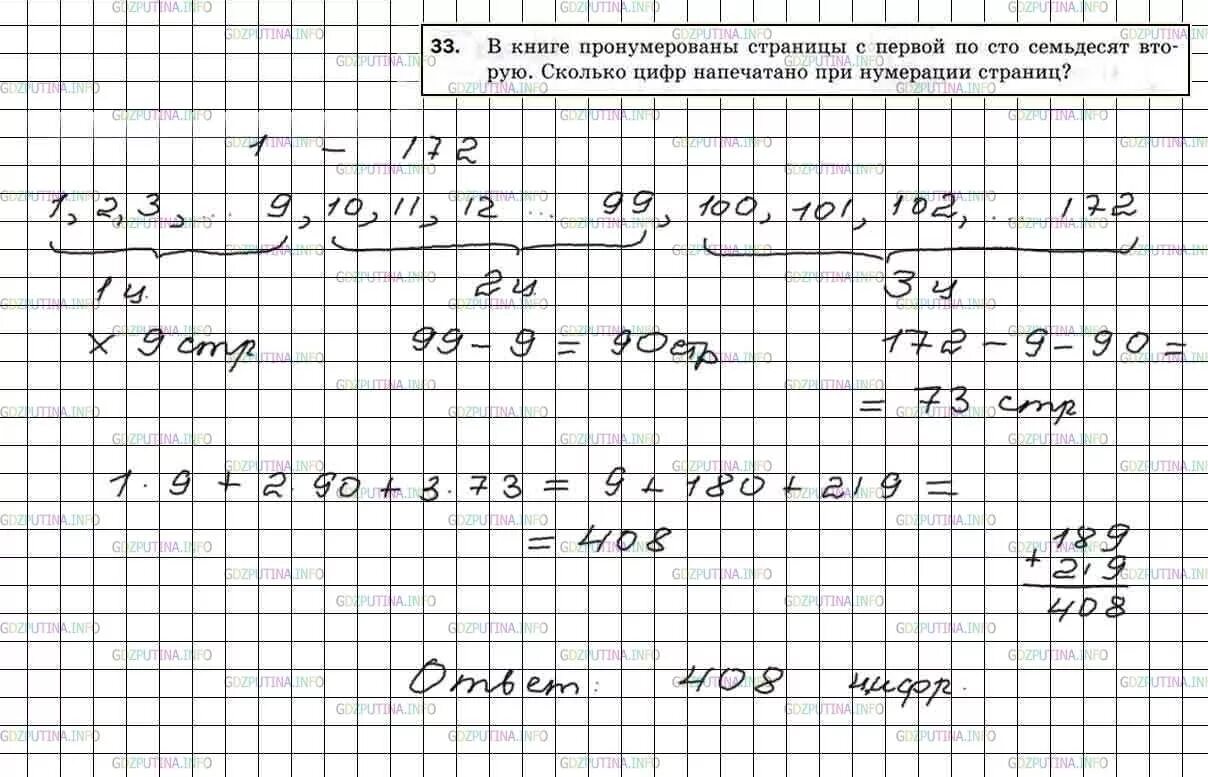 33. В книге пронумерованы страницы с первой по сто семьдесят вто-
рую. Сколько цифр напечатано при нумерации страниц?
1 – 172
1, 2, 3, ... 9, 10, 11, 12 ... 99, 100, 101, 102, ... 172
1 ц. 2 ц. 3 ц
× 9 стр 99 - 9 = 90 стр 172 - 9 - 90 =
= 73 стр
1 · 9 + 2 · 90 + 3 · 73 = 9 + 180 + 219 =
= 408
189
+ 219
408
Ответ: 408 цифр.
GDZPUTINA.INFO